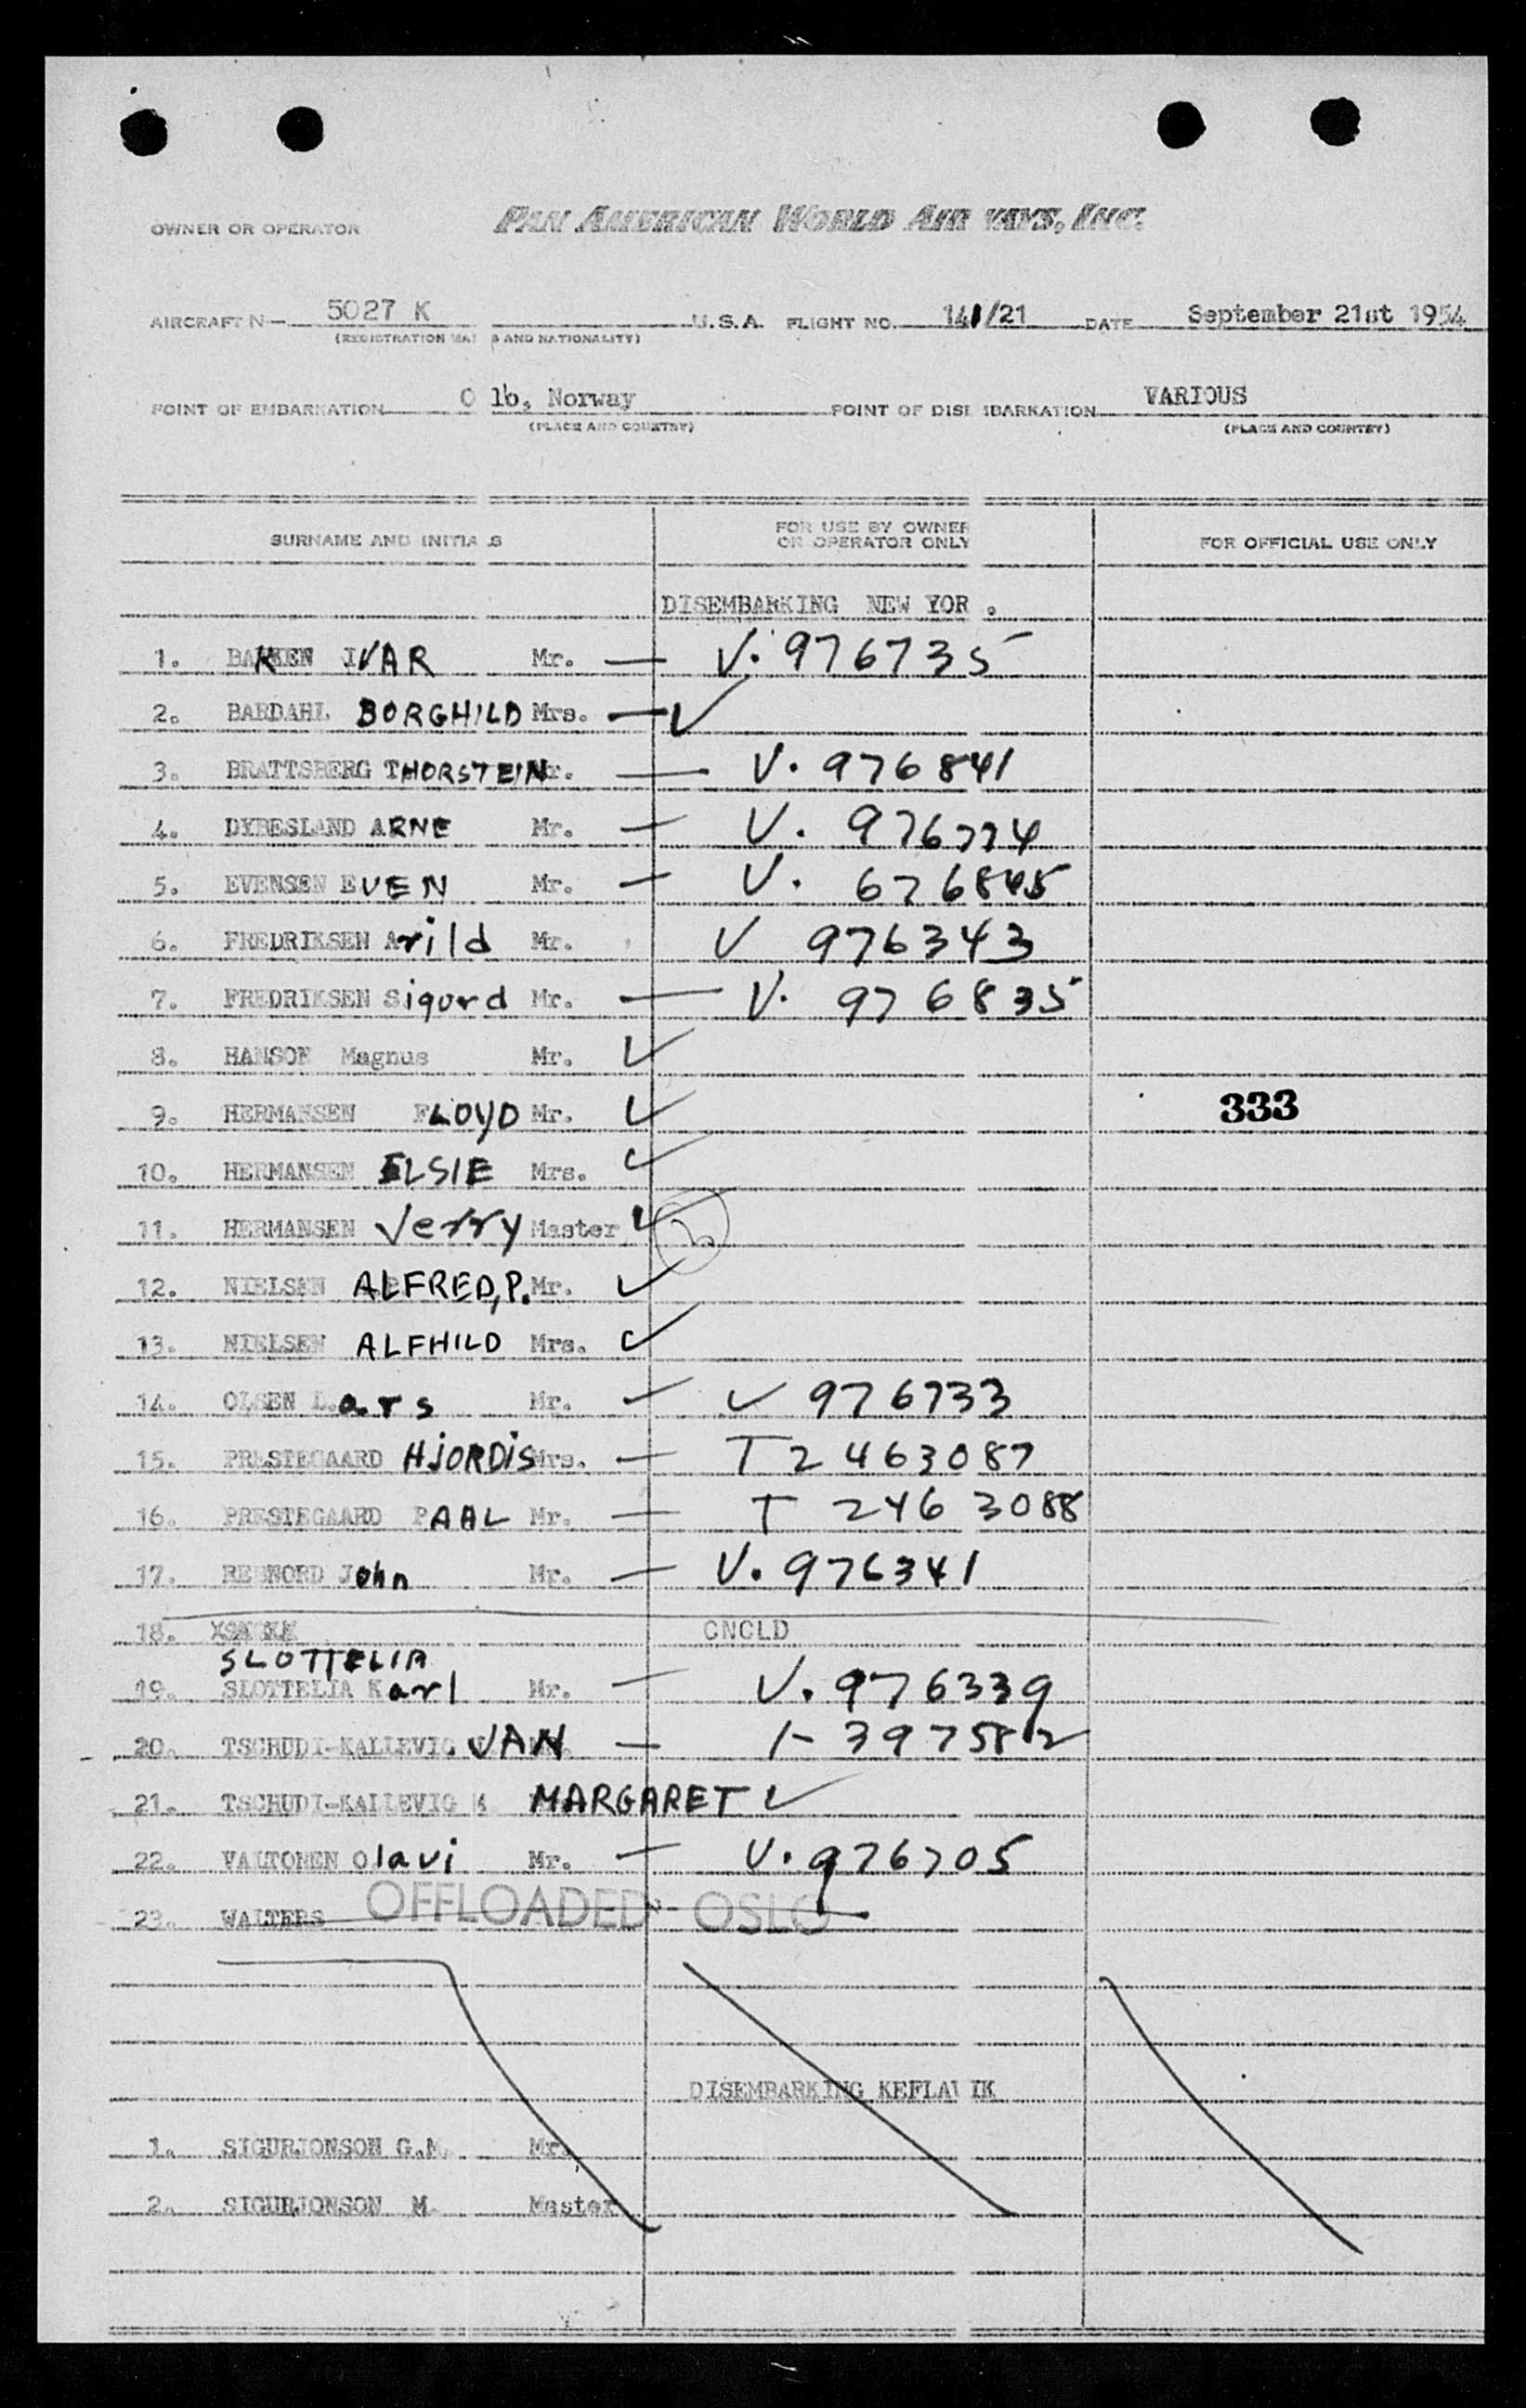 OWNER OR OPERATOR PAN AMERICAN WORLD AIR WAYS, INC.
AIRCRAFT N— 5027 K U.S.A. FLIGHT NO. 141/21 DATE September 21st 1954
(REGISTRATION MARKS AND NATIONALITY)
POINT OF EMBARKATION O lo, Norway POINT OF DISEMBARKATION VARIOUS
(PLACE AND COUNTRY) (PLACE AND COUNTRY)
SURNAME AND INITIALS FOR USE BY OWNER OR OPERATOR ONLY FOR OFFICIAL USE ONLY
DISEMBARKING NEW YOR .
1. BAKKEN IVAR Mr. — V. 976735
2. BARDAHL BORGHILD Mrs. — ✓
3. BRATTSBERG THORSTEIN Mr. — V. 976841
4. DYBESLAND ARNE Mr. — V. 976774
5. EVENSEN EVEN Mr. — V. 676845
6. FREDRIKSEN Arild Mr. V 976343
7. FREDRIKSEN Sigurd Mr. — V. 976835
8. HANSON Magnus Mr. ✓
9. HERMANSEN FLOYD Mr. ✓ 333
10. HERMANSEN ELSIE Mrs. ✓
11. HERMANSEN Jerry Master ✓
12. NIELSEN ALFRED, P. Mr. ✓
13. NIELSEN ALFHILD Mrs. ✓
14. OLSEN Lars Mr. — V 976733
15. PRESTEGAARD HJORDIS Mrs. — T 2463087
16. PRESTEGAARD PAAL Mr. — T 2463088
17. John Mr. — V. 976341
18. CNCLD
SLOTTELIA
19. SLOTTELIA Karl Mr. — V. 976339
20. TSCHUDI-KALLEVIG JAN — 397582
21. TSCHUDI-KALLEVIG MARGARET ✓
22. VALTONEN Olavi Mr. — V. 976705
23. WALTERS OFFLOADED - OSLO
DISEMBARKING KEFLAVIK
1. SIGURJONSON G.M. Mr.
2. SIGURJONSON M. Master